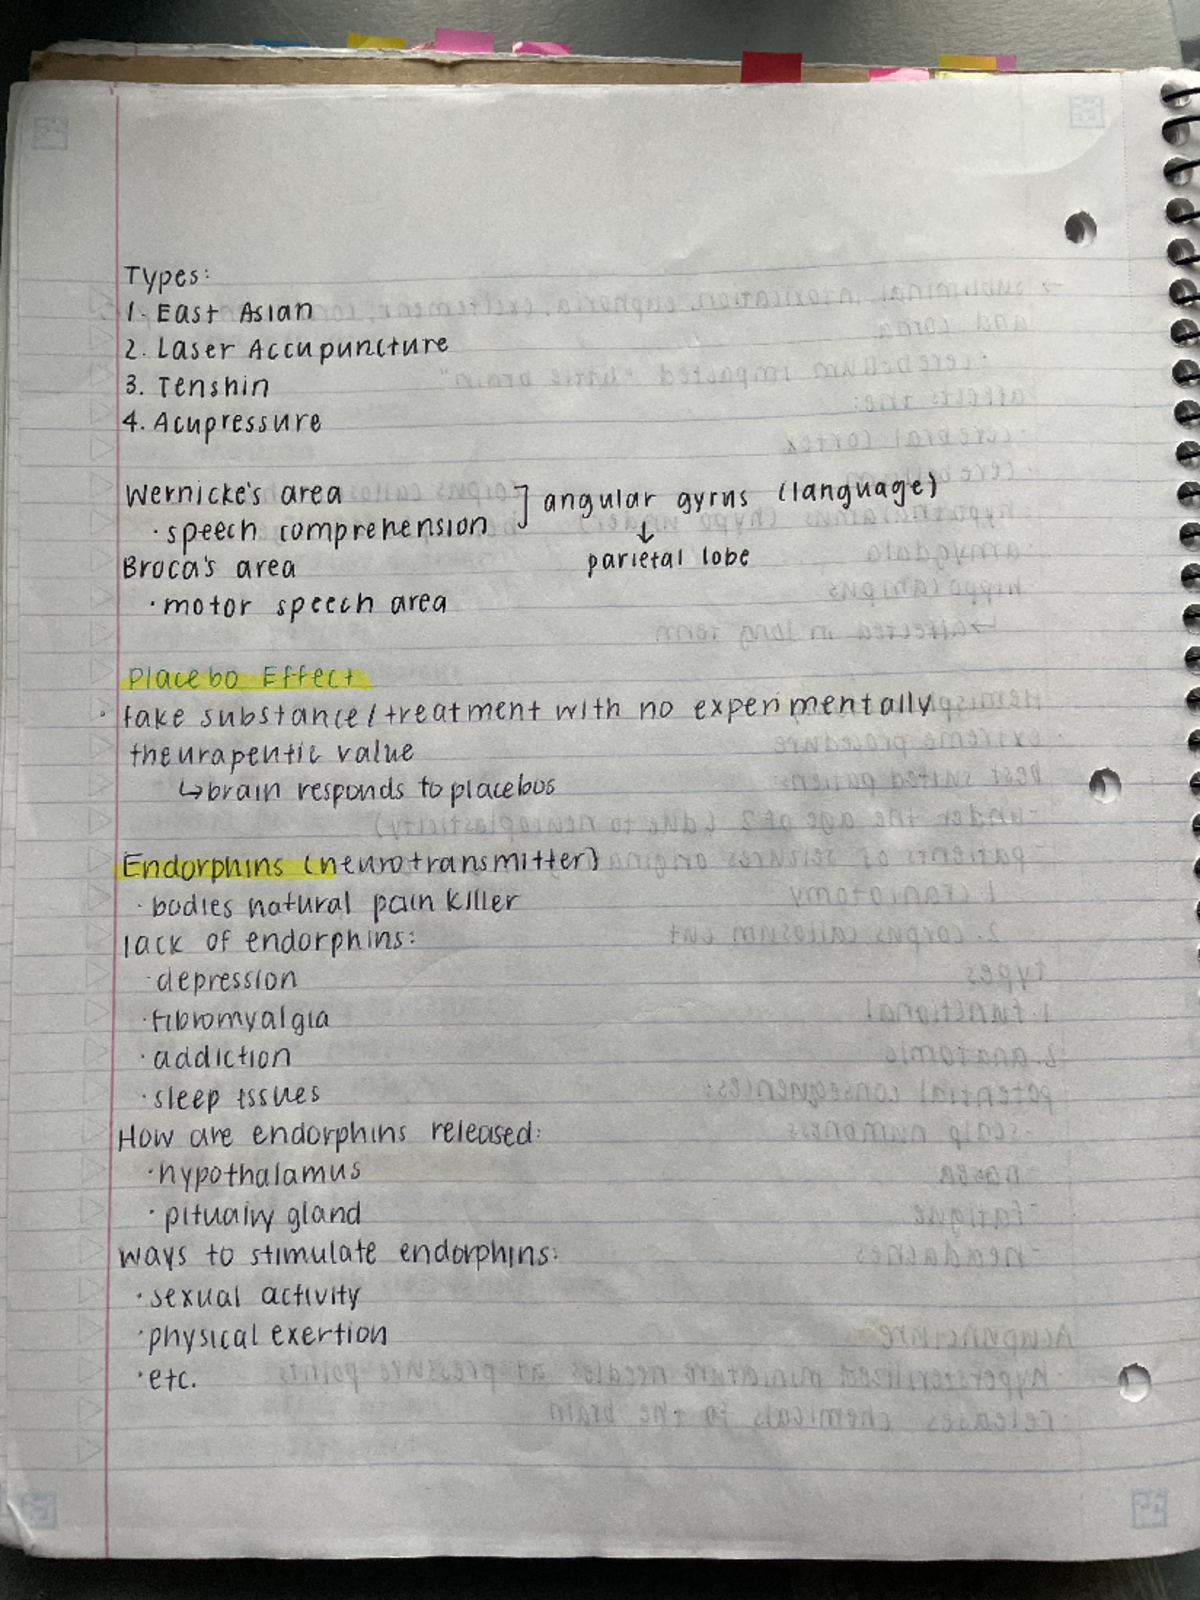 Types:
1. East Asian
2. Laser Accupuncture
3. Tenshin
4. Acupressure
Wernicke's area ] angular gyrus (language)
· speech comprehension ↓
Broca's area parietal lobe
· motor speech area
Placebo Effect
· fake substance/treatment with no experimentally
theurapentic value
↳ brain responds to placebos
Endorphins (neurotransmitter)
· bodies natural pain killer
lack of endorphins:
· depression
· fibromyalgia
· addiction
· sleep issues
How are endorphins released:
· hypothalamus
· pituairy gland
ways to stimulate endorphins:
· sexual activity
· physical exertion
· etc.